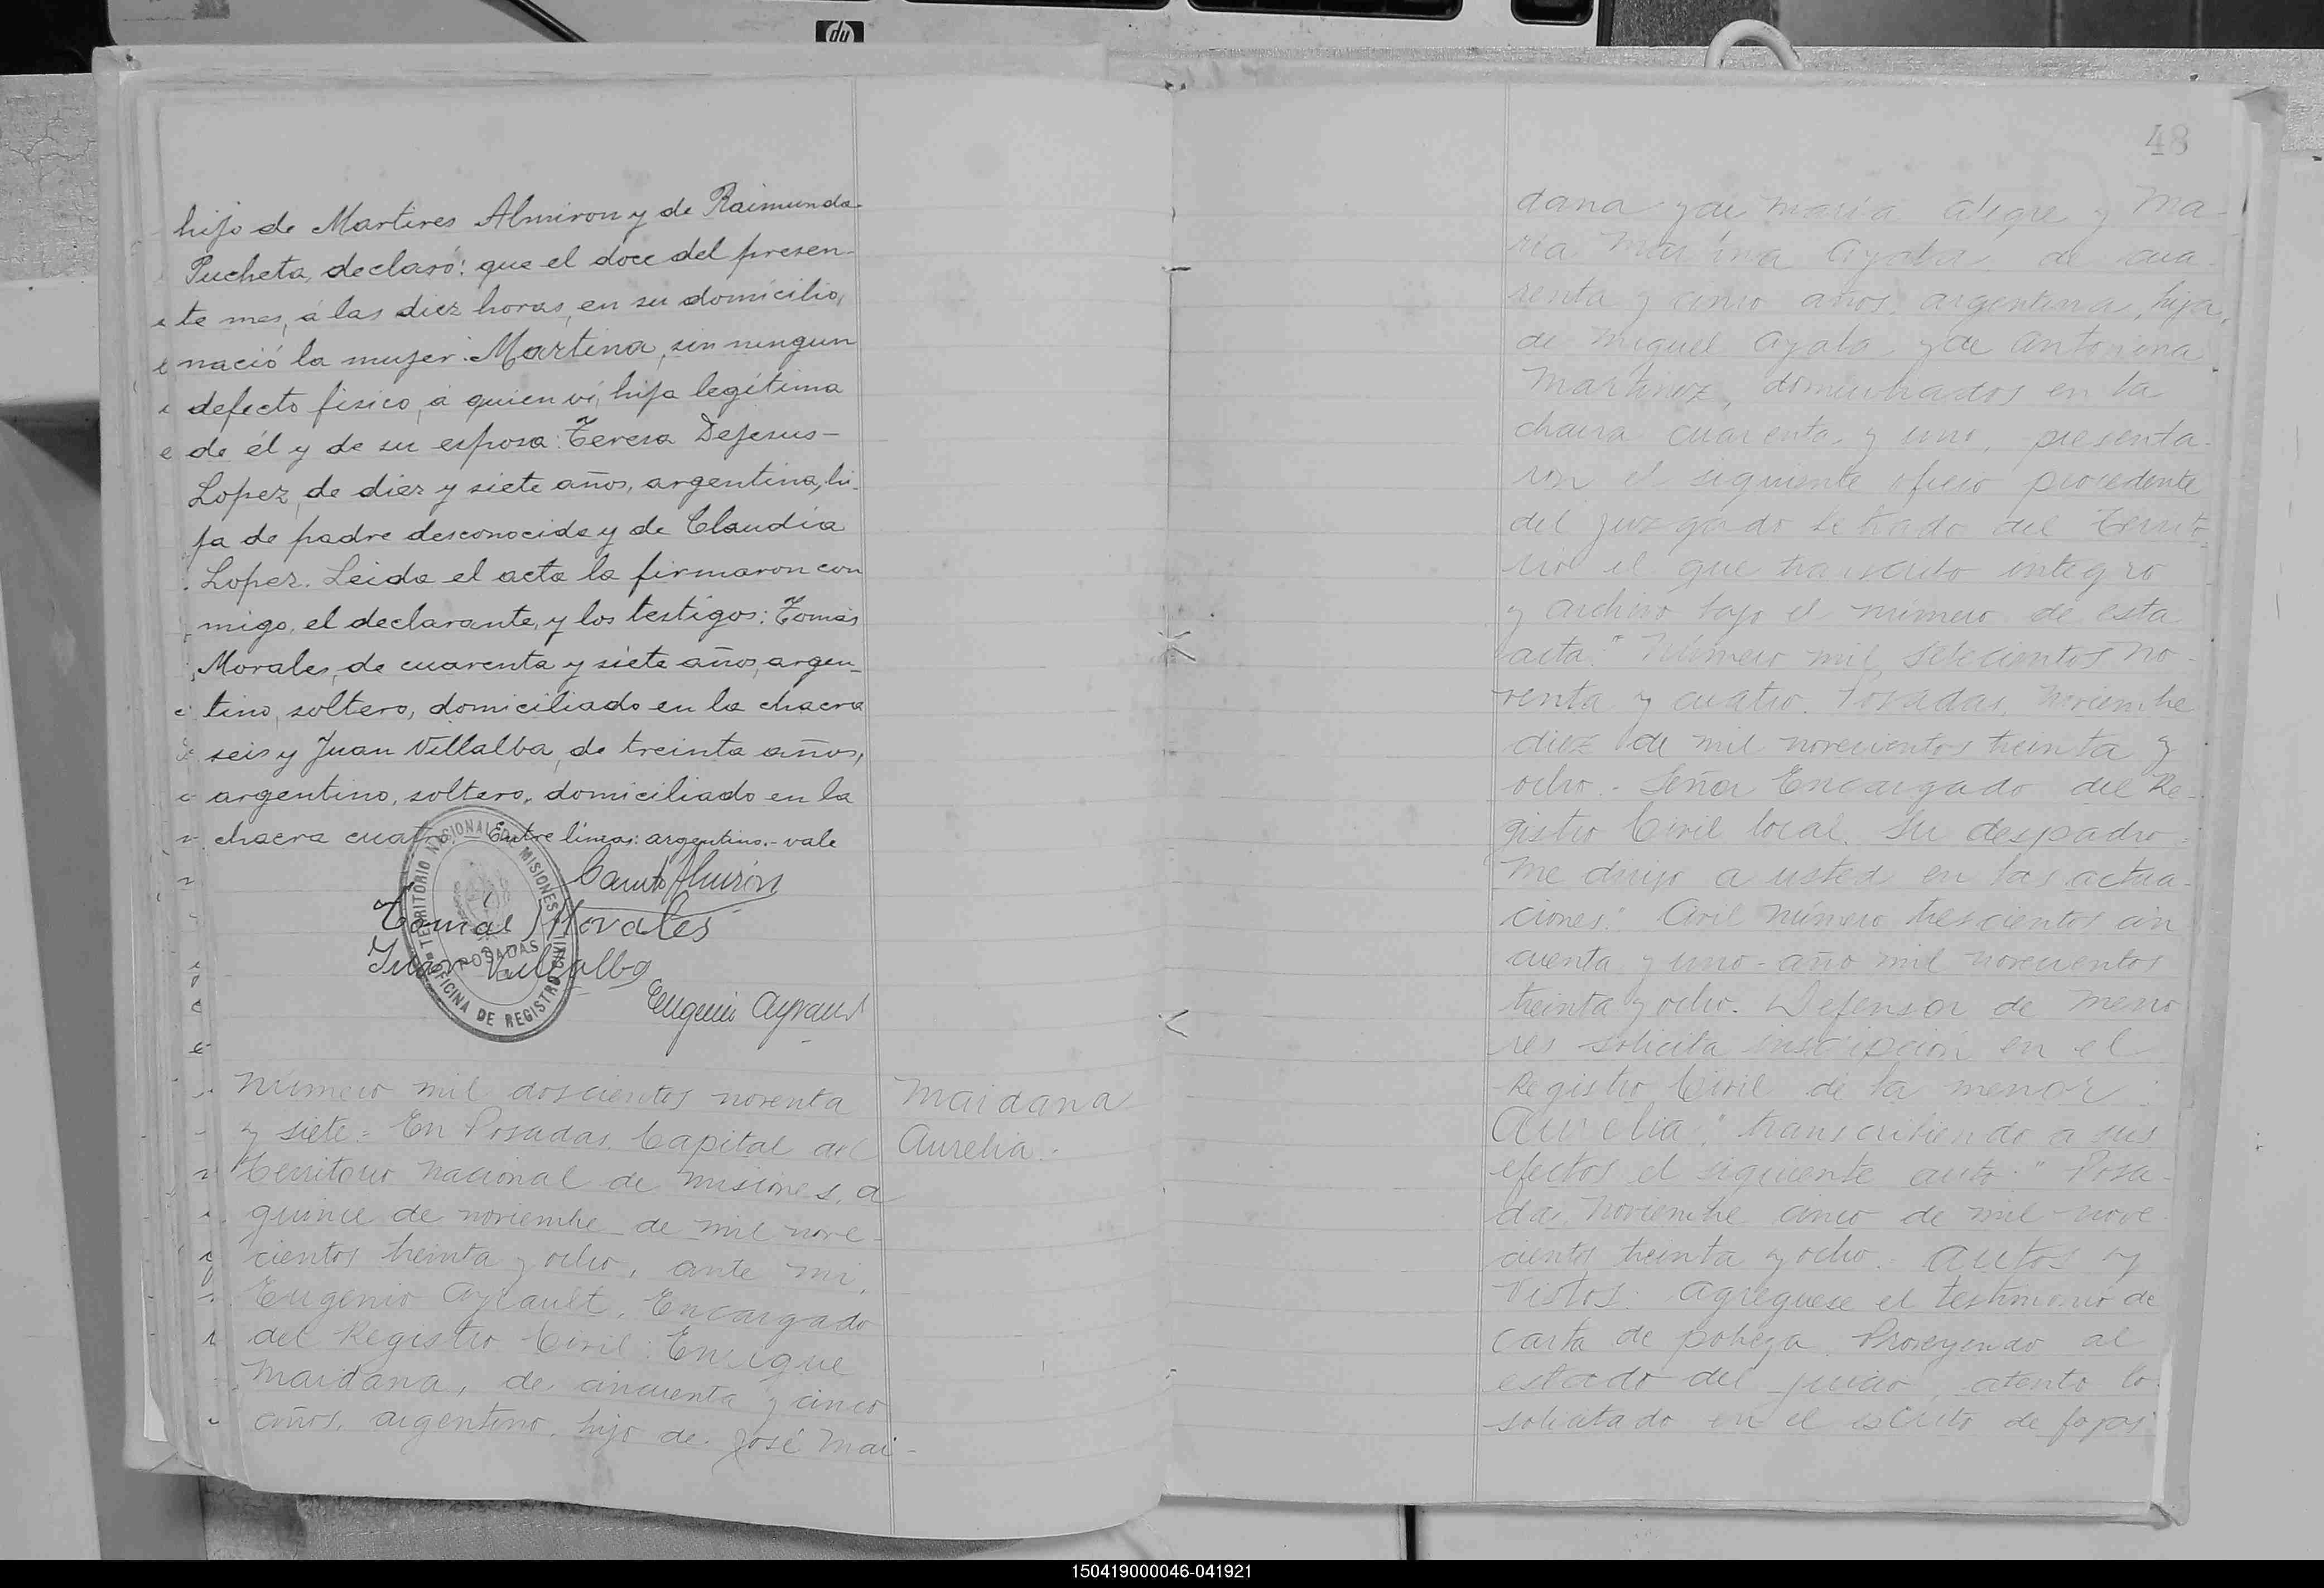 hp
hijo de Martires Almiron y de Raimunda
Pucheta, declaró: que el doce del presen-
te mes, á las diez horas, en su domicilio,
nació la mujer: Martina, sin ningun
defecto fisico, á quien ví, hija legítima
de él y de su esposa: Teresa Dejesus-
Lopez, de diez y siete años, argentina, hi-
ja de padre desconocido y de Claudia
Lopez. Leida el acta la firmaron con
migo, el declarante, y los testigos: Tomás
Morales, de cuarenta y siete años, argen-
tino, soltero, domiciliado en la chacra
seis y Juan Villalba, de treinta años,
argentino, soltero, domiciliado en la
chacra cuatro. Entre lineas: argentino.- vale
TERRITORIO NACIONAL DE MISIONES
POSADAS
OFICINA DE REGISTRO CIVIL
Almirón
Tomas Morales
Juan Villalba
Eugenio Ayrault
Número mil doscientos noventa
y siete = En Posadas Capital del
Territorio Nacional de Misiones, a
quince de noviembre de mil nove-
cientos treinta y ocho, ante mi,
Eugenio Ayrault, Encargado
del Registro Civil: Enrique
Maidana, de cincuenta y cinco
años, argentino, hijo de José Mai-
Maidana
Aurelia.-
48
dana y de María Alegre y Ma-
ria Ayala, de cua-
renta y cinco años, argentina, hija,
de Miguel Ayala y de Antonina
Martinez, domiciliados en la
chacra cuarenta y uno, presenta-
ron el siguiente oficio procedente
del Juzgado Letrado del Territo-
rio el que transcribo integro
y archivo bajo el número de esta
acta. "Número mil setecientos no-
venta y cuatro. Posadas, Noviembre
diez de mil novecientos treinta y
ocho.- Señor Encargado del Re-
gistro Civil local. Su despacho =
Me dirijo a usted en las actua-
ciones: "Civil número trescientos cin
cuenta y uno - año mil novecientos
treinta y ocho. Defensor de Meno
res solicita inscripción en el
Registro Civil de la menor :
Aurelia", transcribiendo a sus
efectos el siguiente auto: "Posa-
das, Noviembre cinco de mil nove
cientos treinta y ocho.- Autos y
Vistos: Agreguese el testimonio de
carta de pobreza. Proveyendo al
estado del juicio, atento lo
solicitado en el escrito de fojas
150419000046-041921